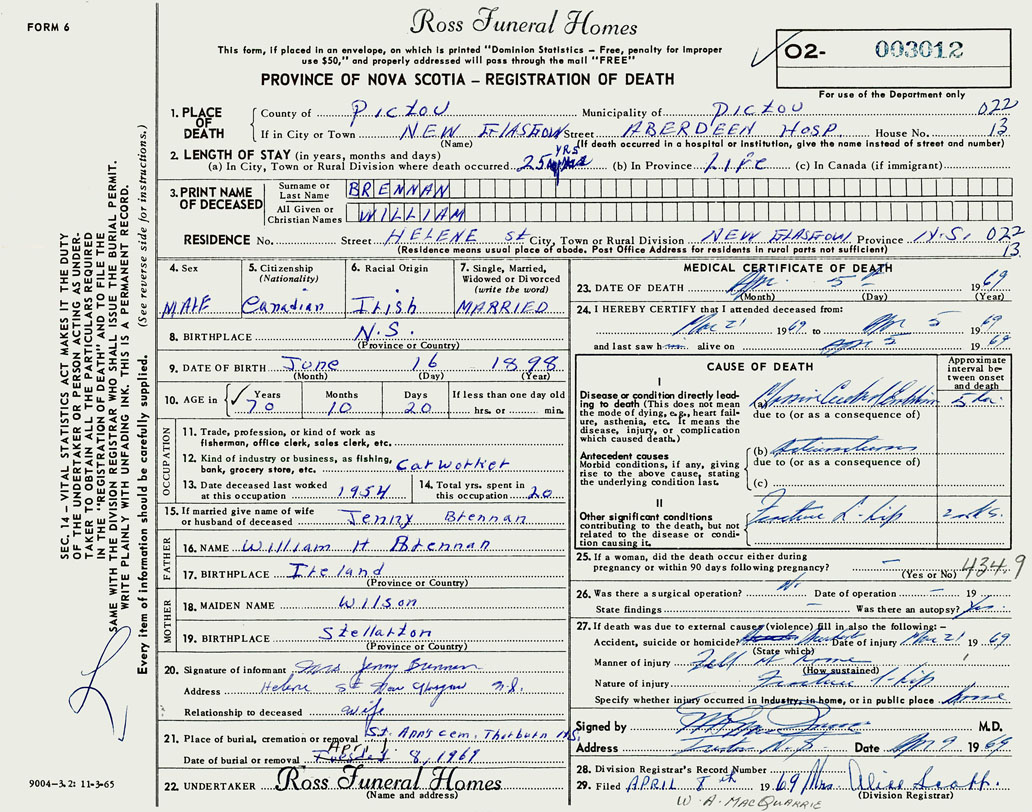 FORM 6
Ross Funeral Homes
This form, if placed in an envelope, on which is printed "Dominion Statistics – Free, penalty for improper
use $50," and properly addressed will pass through the mail "FREE"
PROVINCE OF NOVA SCOTIA – REGISTRATION OF DEATH
O2- 003012
For use of the Department only
1. PLACE OF DEATH
County of PICTOU Municipality of PICTOU 022
If in City or Town NEW GLASGOW Street ABERDEEN HOSP House No. 13
(Name) (If death occurred in a hospital or institution, give the name instead of street and number)
2. LENGTH OF STAY (in years, months and days)
YRS
(a) In City, Town or Rural Division where death occurred 25 (b) In Province LIFE (c) In Canada (if immigrant)
3. PRINT NAME OF DECEASED
Surname or Last Name BRENNAN
All Given or Christian Names WILLIAM
RESIDENCE No. Street HELENE St City, Town or Rural Division NEW GLASGOW Province N.S. 022
(Residence means usual place of abode. Post Office Address for residents in rural parts not sufficient) 13
4. Sex MALE
5. Citizenship (Nationality) Canadian
6. Racial Origin Irish
7. Single, Married, Widowed or Divorced (write the word) MARRIED
8. BIRTHPLACE N.S.
(Province or Country)
9. DATE OF BIRTH June 16 1898
(Month) (Day) (Year)
10. AGE in Years Months Days If less than one day old
70 10 20 hrs. or min.
OCCUPATION
11. Trade, profession, or kind of work as
fisherman, office clerk, sales clerk, etc.
12. Kind of industry or business, as fishing,
bank, grocery store, etc. Car Worker
13. Date deceased last worked
at this occupation 1954
14. Total yrs. spent in
this occupation 20
15. If married give name of wife
or husband of deceased Jenny Brennan
FATHER
16. NAME William H Brennan
17. BIRTHPLACE Ireland
(Province or Country)
MOTHER
18. MAIDEN NAME Wilson
19. BIRTHPLACE Stellarton
(Province or Country)
20. Signature of informant Mrs Jenny Brennan
Address Helene St New Glasgow N.S.
Relationship to deceased Wife
21. Place of burial, cremation or removal St. Ann's Cem. Thorburn NS.
April
Date of burial or removal 8, 1969
22. UNDERTAKER Ross Funeral Homes
(Name and address)
MEDICAL CERTIFICATE OF DEATH
23. DATE OF DEATH Apr. 5 1969
(Month) (Day) (Year)
24. I HEREBY CERTIFY that I attended deceased from:
Mar 21 1969 to Apr 5 1969
and last saw him alive on Apr 5 1969
CAUSE OF DEATH
Approximate interval between onset and death
I
Disease or condition directly leading to death (This does not mean
the mode of dying, e.g., heart failure, asthenia, etc. It means the
disease, injury, or complication
which caused death.)
(a) Massive Cerebral 5
due to (or as a consequence of)
Antecedent causes
Morbid conditions, if any, giving
rise to the above cause, stating
the underlying condition last.
(b)
due to (or as a consequence of)
(c)
II
Other significant conditions
contributing to the death, but not
related to the disease or condition causing it.
Fracture L-hip 2 wks.
25. If a woman, did the death occur either during
pregnancy or within 90 days following pregnancy? –
(Yes or No) 434.9
26. Was there a surgical operation? No. Date of operation – 19
State findings – Was there an autopsy? Yes.
27. If death was due to external causes (violence) fill in also the following: –
Accident, suicide or homicide? Accident Date of injury Mar 21 1969
(State which)
Manner of injury Fell at home
(How sustained)
Nature of injury Fracture L-hip
Specify whether injury occurred in industry, in home, or in public place home
Signed by M.D.
Address N.S. Date Apr 9 1969
28. Division Registrar's Record Number
29. Filed APRIL 8th 1969 Mrs. Alice Scott.
(Division Registrar)
W. A. MACQUARRIE
SEC. 14 – VITAL STATISTICS ACT MAKES IT THE DUTY
OF THE UNDERTAKER OR PERSON ACTING AS UNDER-
TAKER TO OBTAIN ALL THE PARTICULARS REQUIRED
IN THE "REGISTRATION OF DEATH" AND TO FILE THE
SAME WITH THE DIVISION REGISTRAR WHO SHALL ISSUE THE BURIAL PERMIT.
WRITE PLAINLY WITH UNFADING INK. THIS IS A PERMANENT RECORD.
Every item of information should be carefully supplied. (See reverse side for instructions.)
9004-3.2: 11-3-65